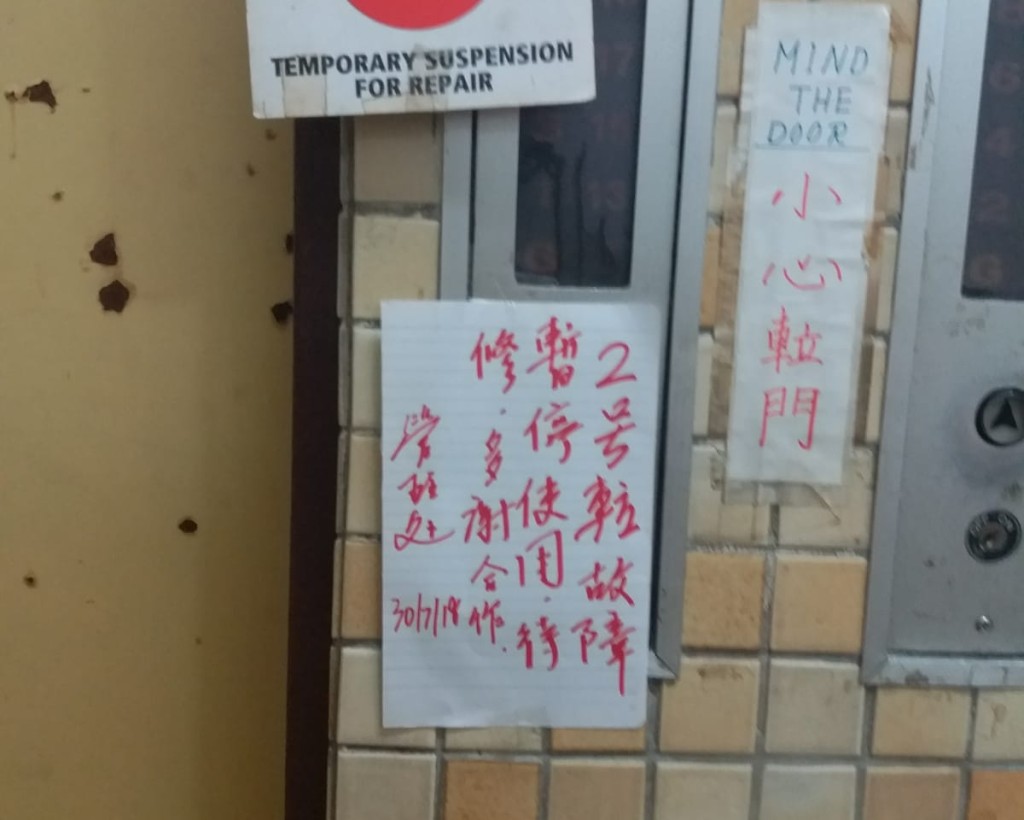 TEMPORARY SUSPENSION
FOR REPAIR
MIND
THE
DOOR
小心𨋢門
2号𨋢故障
暫停使用.待
修.多谢合作.
管理处
30/7/18